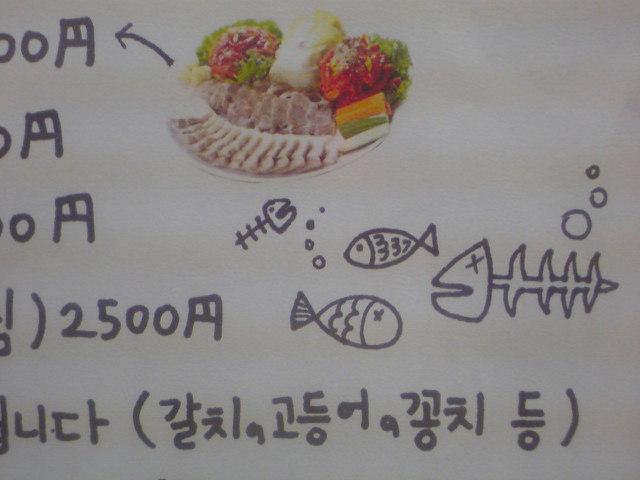 00円
0円
00円
림) 2500円
됩니다 (갈치, 고등어, 꽁치 등)